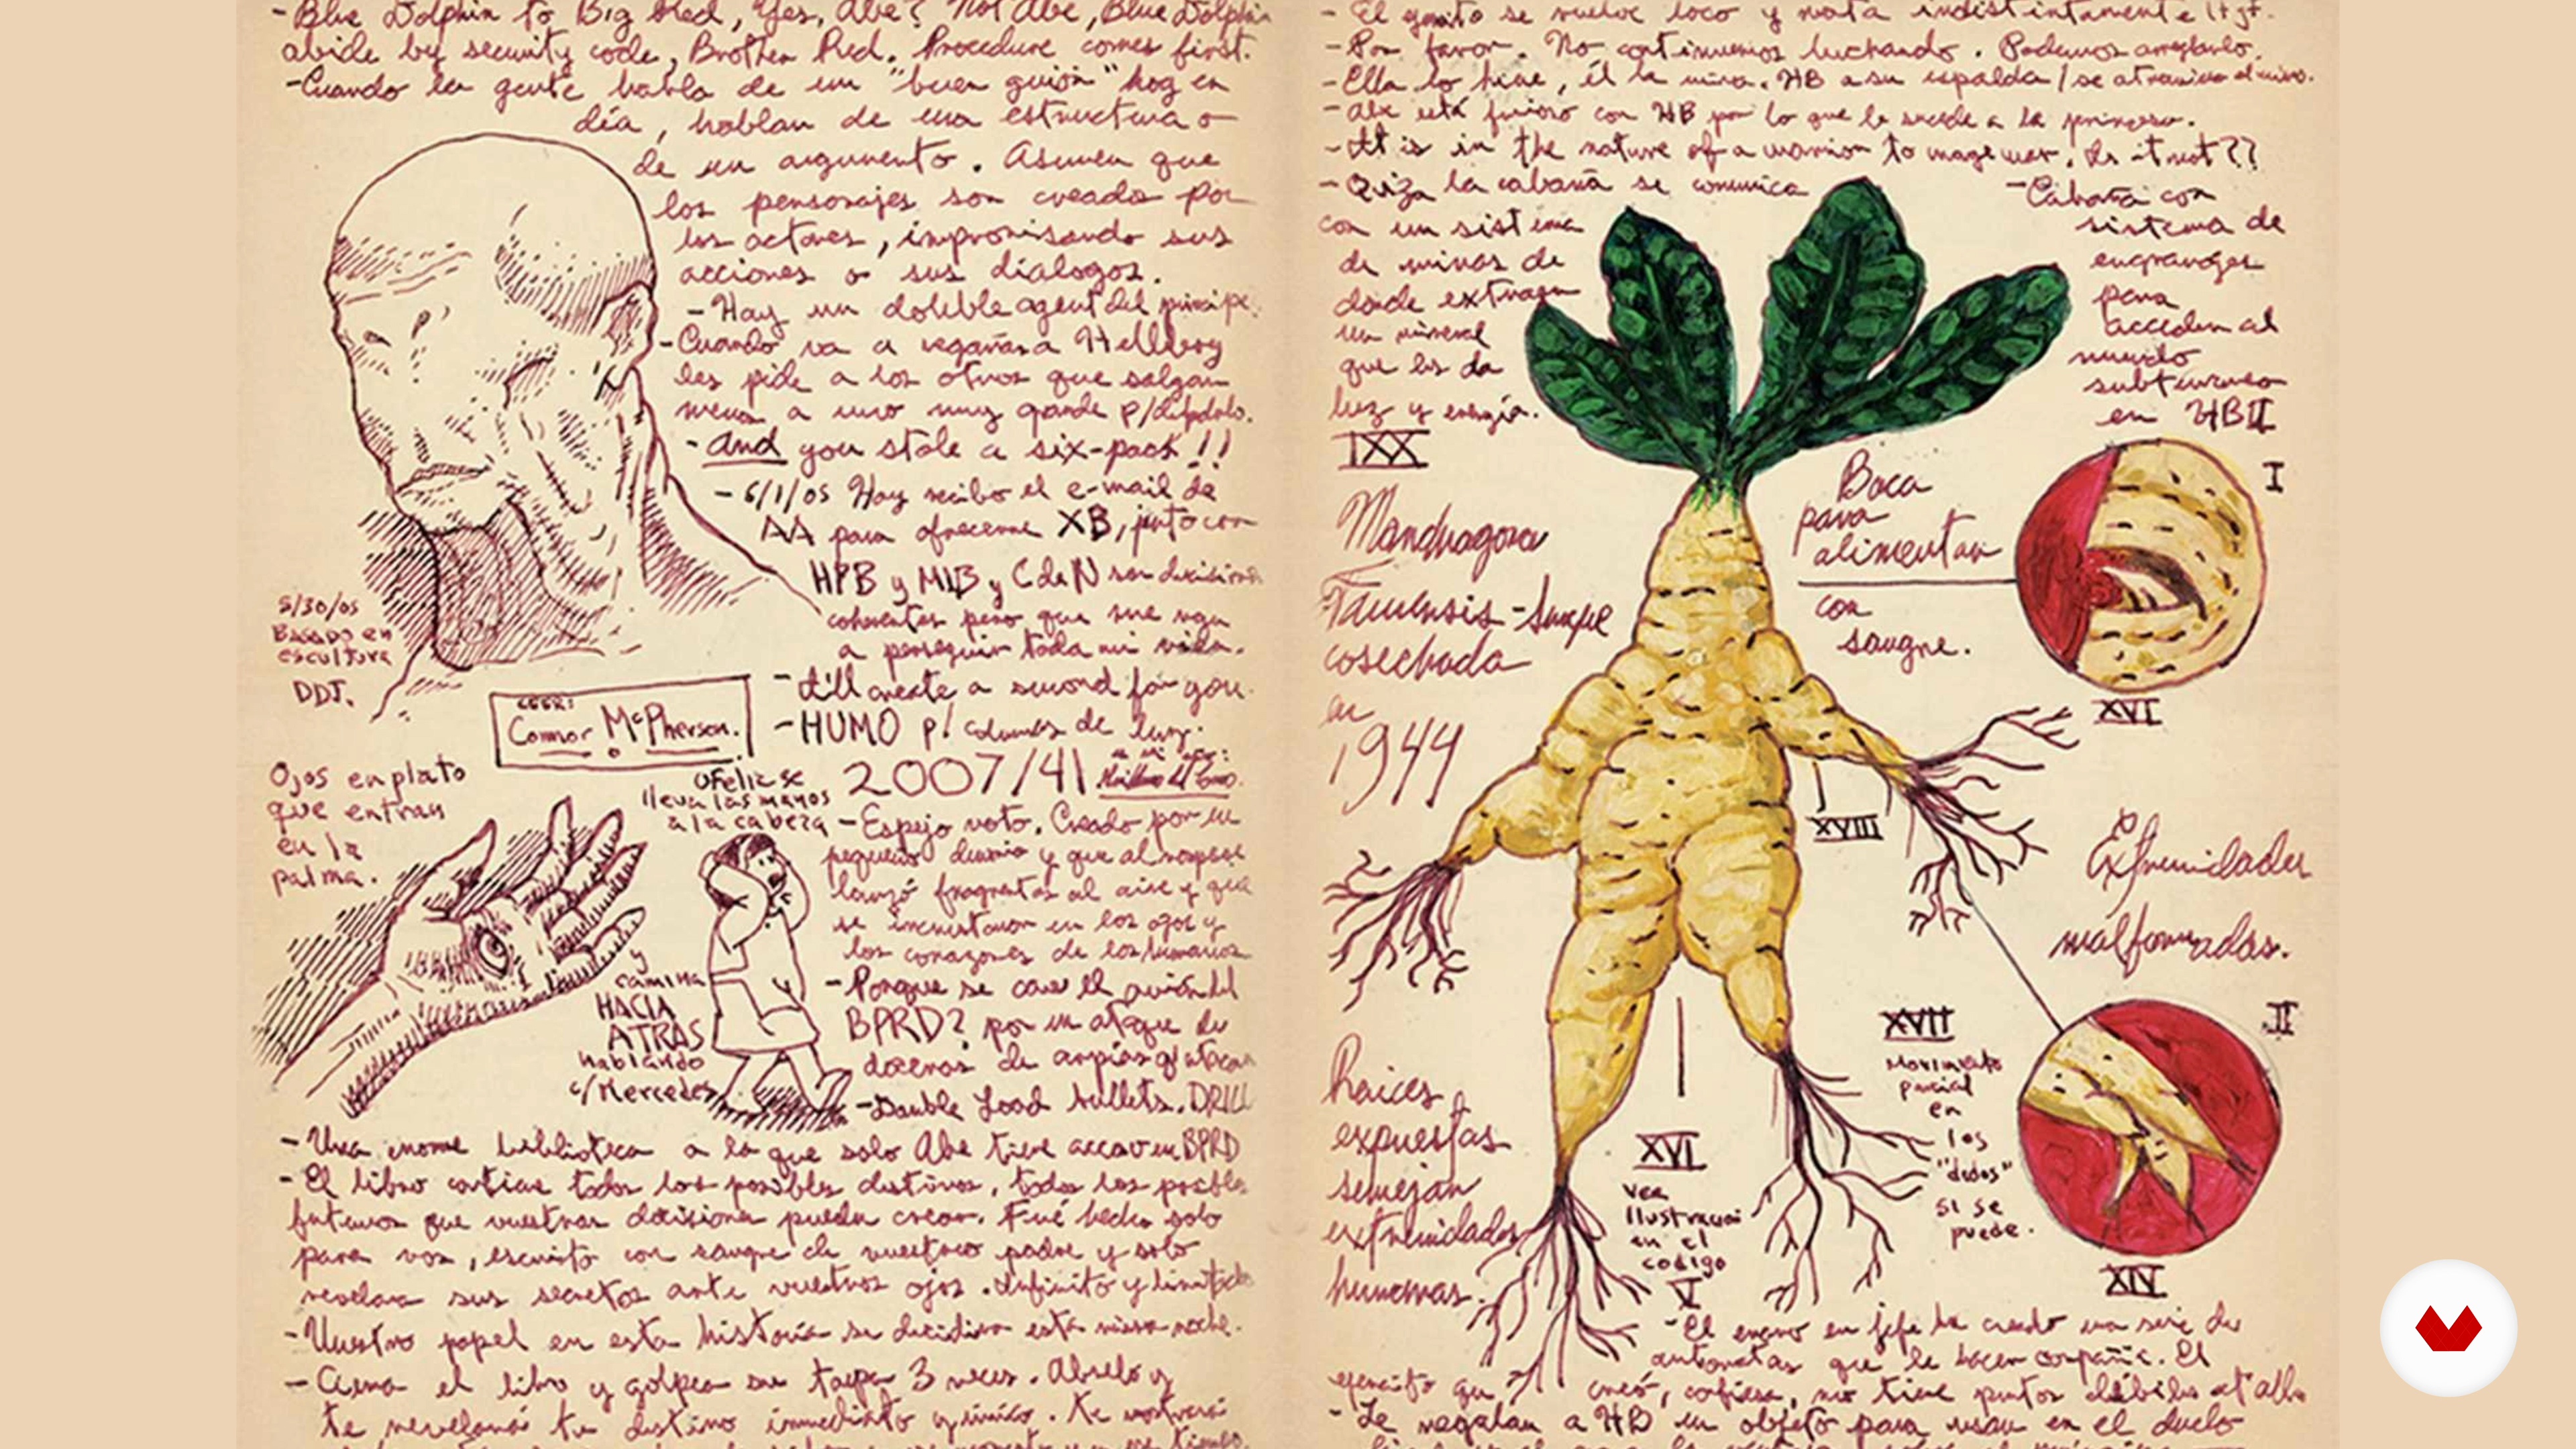 - Blue Dolphin to Big Red, Yes, Abe? Not Abe, Blue Dolphin
abide by security code, Brother Red. Procedure comes first.
- Cuando la gente habla de un "buen guión" hoy en
día, hablan de una estructura o
de un argumento. Asumen que
los personajes son creados por
los actores, improvisando sus
acciones o sus dialogos.
- Hay un doble agent del principe.
- Cuando va a regañar a Hellboy
les pide a los otros que salgan
menos a uno muy grande p/
- and you stole a six-pack!!
- 6/1/05 Hoy recibo el e-mail de
AA para ofrecerme XB, junto con
HPB y MLB y C de N son decisiones
coherentes pero que me van
a perseguir toda mi vida.
- I'll create a second for you.
- HUMO p/ columnas de luz.
5/30/05
Basado en
escultura
DDJ.
LEER:
Connor McPherson.
2007/41
Ojos en plato
que entran
en la
palma.
Ofelia se
lleva las manos
a la cabeza
y
camina
HACIA
ATRAS
hablando
c/Mercedes
- Espejo roto. Creado por un
pequeño demonio y que al romperse
lanzó fragmentos al aire y que
se incrustaron en los ojos y
los corazones de los humanos
- Porque se cae el avión del
BPRD? por un ataque de
docenas de arpías q/ atacan
- Double Load bullets. DRILL
- Una enorme biblioteca a la que solo Abe tiene acceso en BPRD
- El libro contiene todos los posibles destinos, todos los posibles
futuros que vuestras decisiones puedan crear. Fué hecho solo
para vos, escrito con sangre de vuestro padre y solo
revelara sus secretos ante vuestros ojos. Infinito y limitado
- Vuestro papel en esta historia se decidira esta misma noche.
- Cierra el libro y golpea su tapa 3 veces. Abrelo y
te revelará tu destino inmediato y unico. te mostrará
- El se vuelve loco y mata indistintamente
- Por favor. No continuemos luchando. Podemos arreglarlo.
- Ella lo hiere, él la mira. HB a su espalda / se atraviesa
- Abe está furioso con HB por lo que le sucede a la princesa.
- It is in the nature of a warrior to wage war. Is it not??
- Quiza la cabaña se comunica
con un sistema
de minas de
donde extraen
un mineral
que les da
luz y energía.
- Cabaña con
sistema de
engranajes
para
acceder al
mundo
subterraneo
en HBII
IXX
Mandragora
cosechada
en
1944
Boca
para
alimentar
con
sangre.
I
XVI
XVIII
Extremidades
malformadas.
Raices
expuestas
semejan
extremidades
humanas.
XVI
Ver
Ilustracion
en el
codigo
V
XVII
Movimiento
parcial
en
los
"dedos"
si se
puede.
II
XIV
- El enano en jefe ha creado una serie de
automatas que le hacen compañia. El
ejercito que creó, confiesa, no tiene puntos débiles
- Le regalan a HB un objeto para usar en el duelo